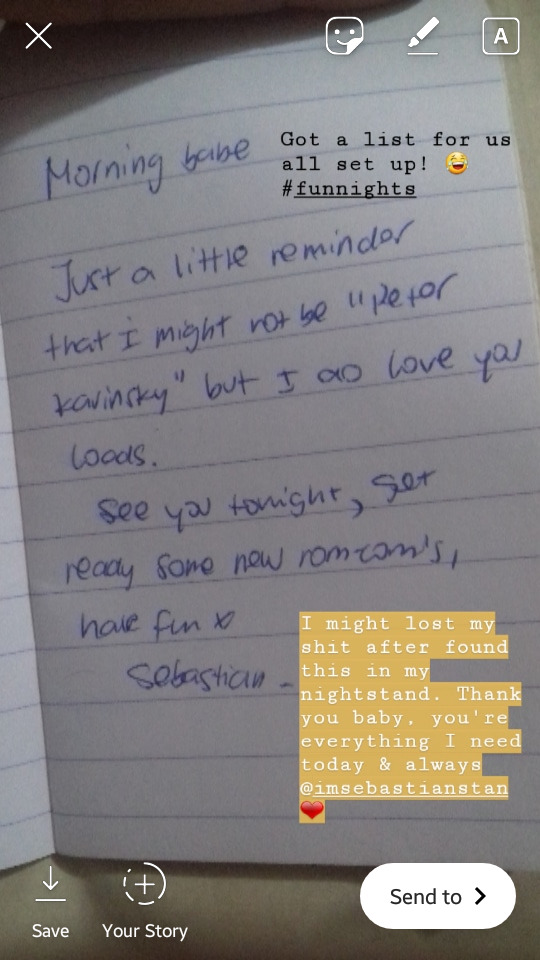 Morning babe
Got a list for us
all set up! 😂
#funnights
Just a little reminder
that I might not be "Peter
Kavinsky" but I do love you
loads.
See you tonight, get
ready some new rom-com's,
have fun x
Sebastian -
I might lost my
shit after found
this in my
nightstand. Thank
you baby, you're
everything I need
today & always
@imsebastianstan
❤️
Save
Your Story
Send to
A